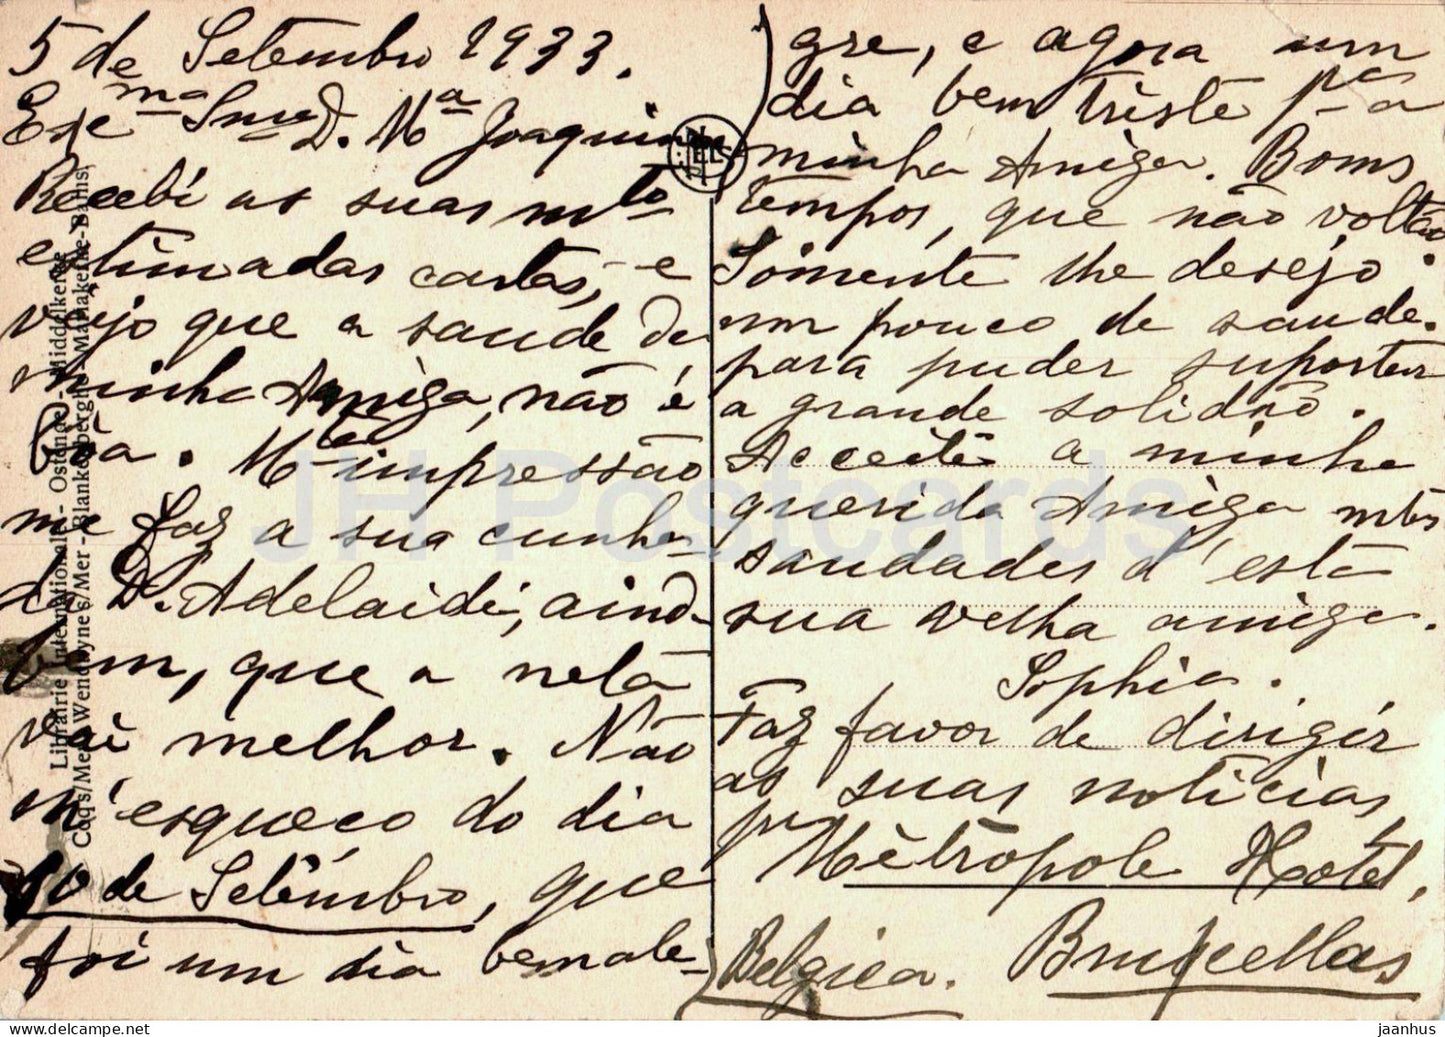 5 de Setembro 1933.
Exc^ma Snra D. M^a Joaquina
Recebi as suas m^to
estimadas cartas, e
vejo que a saude da
minha Amiga, não é
bôa. M^ta impressão
me faz a sua cunha-
da D. Adelaide, ainda
bem, que a neta
vai melhor. Não
m'esqueço do dia
10 de Setembro, que
foi um dia bem ale-
gre, e agora um
dia bem triste p^a a
minha Amiga. Bons
tempos, que não voltão.
Sómente lhe desejo
um pouco de saude.
para puder suportar
a grande solidão.
Acceite a minha
querida Amiga m^tas
saudades d'esta
sua velha amiga.
Sophia.
Faz favor de dirigir
as suas noticias,
p^a
Métrôpole Hotel,
Bruxellas
Belgica.
Librairie Internationale - Ostende - Middelkerke
Coq s/Mer - Wenduyne s/Mer - Blankenberghe - Mariakerke-Bains
NELS
JH Postcards
www.delcampe.net
jaanhus